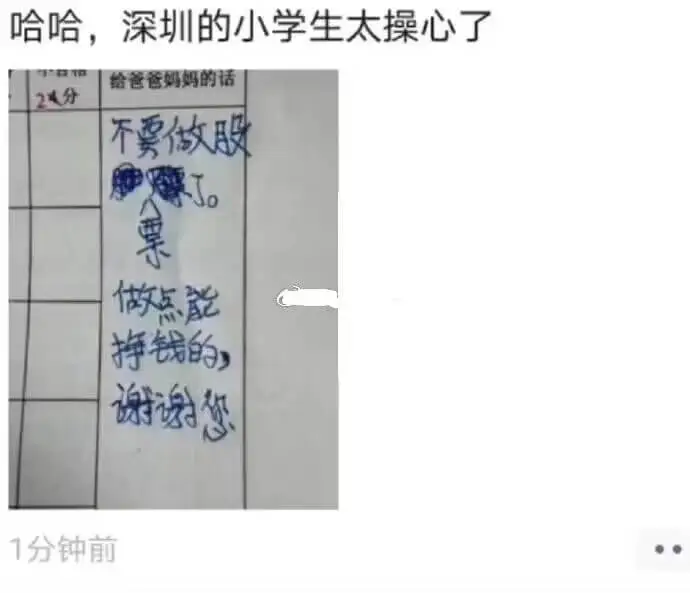 哈哈，深圳的小学生太操心了
不合格
2分
给爸爸妈妈的话
不要做股
了。
票
做点能
挣钱的，
谢谢您
1分钟前